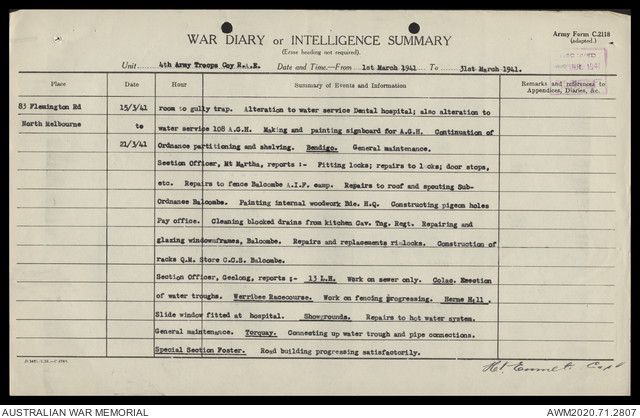 Army Form C.2118
(adapted.)
WAR DIARY or INTELLIGENCE SUMMARY
(Erase heading not required).
Unit 4th Army Troops Coy R.A.E. Date and Time.—From 1st March 1941 To 31st March 1941.
Place Date Hour Summary of Events and Information Remarks and references to Appendices, Diaries, &c.
83 Flemington Rd 15/3/41 room to gully trap. Alteration to water service Dental hospital; also alteration to
North Melbourne to water service 108 A.G.H. Making and painting signboard for A.G.H. Continuation of
21/3/41 Ordnance partitioning and shelving. Bendigo. General maintenance.
Section Officer, Mt Martha, reports :- Fitting locks; repairs to locks; door stops,
etc. Repairs to fence Balcombe A.I.F. camp. Repairs to roof and spouting Sub-
Ordnance Balcombe. Painting internal woodwork Bde. H.Q. Constructing pigeon holes
Pay office. Cleaning blocked drains from kitchen Cav. Tng. Regt. Repairing and
glazing windowframes, Balcombe. Repairs and replacements rimlocks. Construction of
racks Q.M. Store C.C.S. Balcombe.
Section Officer, Geelong, reports :- 13 L.H. Work on sewer only. Colac. Erection
of water troughs. Werribee Racecourse. Work on fencing progressing. Herne Hill.
Slide window fitted at hospital. Showgrounds. Repairs to hot water system.
General maintenance. Torquay. Connecting up water trough and pipe connections.
Special Section Foster. Road building progressing satisfactorily.
Capt
AUSTRALIAN WAR MEMORIAL AWM2020.71.2807